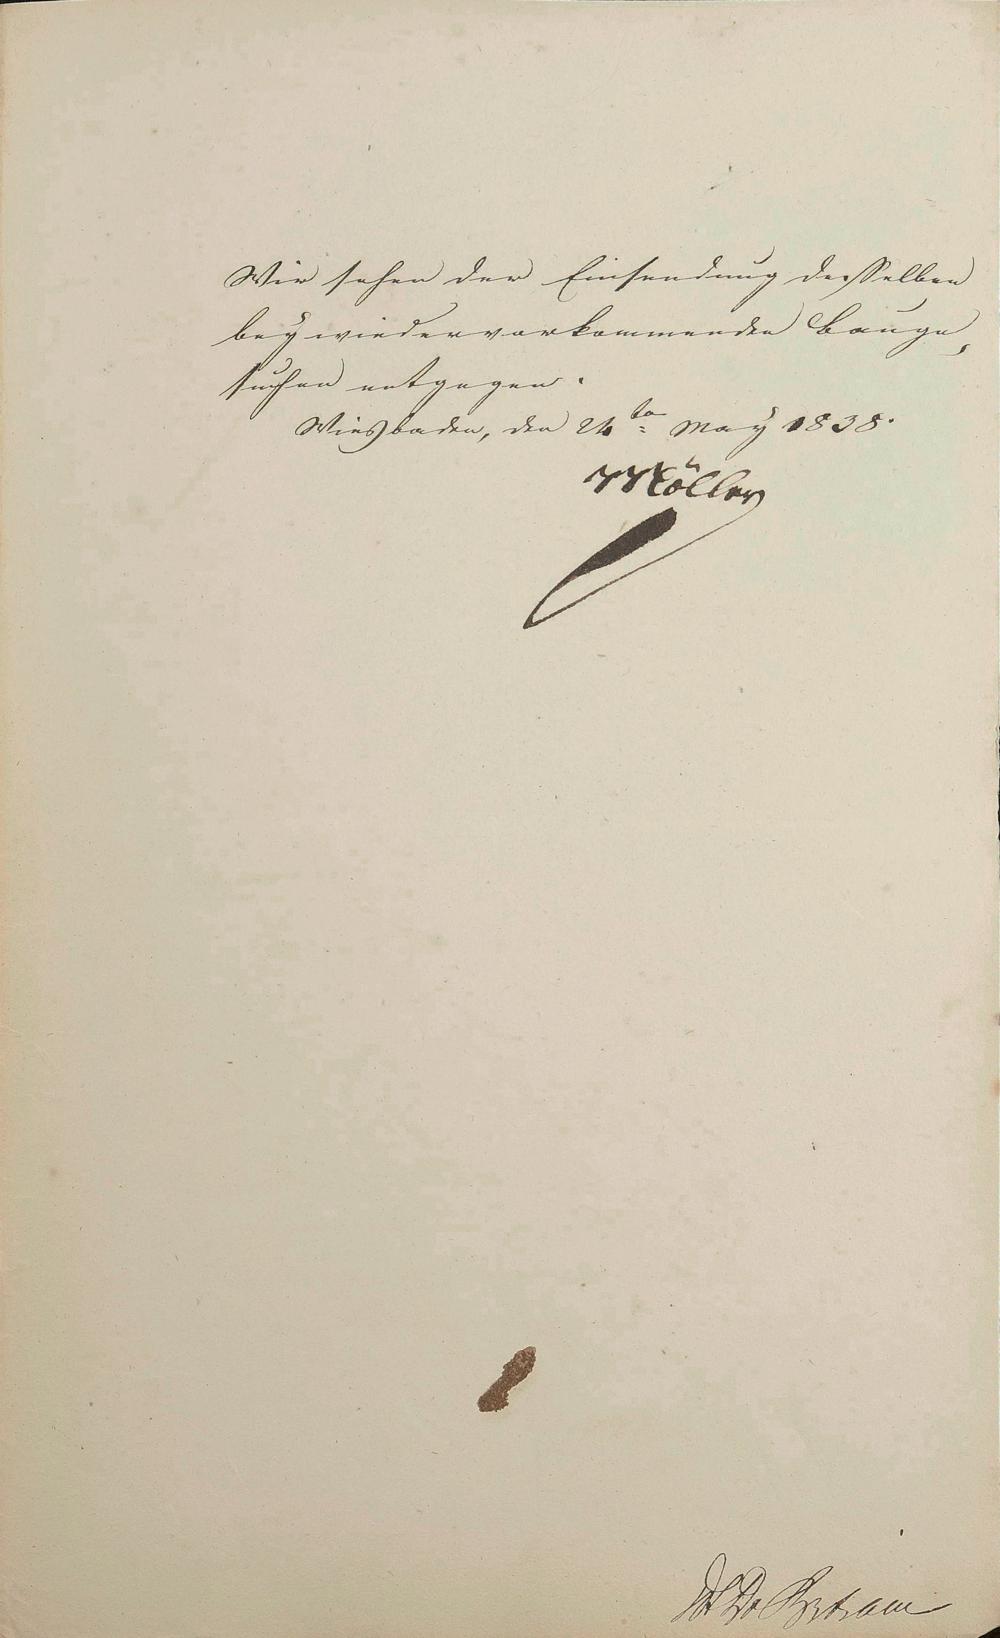 Wir sehen der Einsendung desselben
bey wiedervorkommenden Bauge,
suchen entgegen.
Wiesbaden, den 24ten May 1838.
Möller